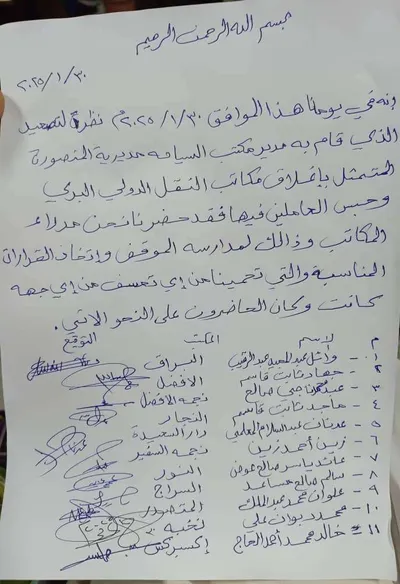 بسم الله الرحمن الرحيم
٢٠٢٥/١/٣٠
إنه في يومنا هذا الموافق ٢٠٢٥/١/٣٠م نظرة لتصعيد
الذي قام به مدير مكتب السياحه مديرية المنصورة
المتمثل بإغلاق مكاتب النقل الدولي البري
وحبس العاملين فيها فقد حضرنا نحن مدراء
المكاتب وذالك لمدارسه الموقف وإتخاذ القرارات
المناسبة والتي تحمينا من إي تعسف من إي جهه
كانت وكان الحاضرون على النحو الاتي.
م الاسم المكتب التوقيع
١- وائل عبدالمجيد عبدالرقيب البراق
٢- جهاد ثابت قاسم الافضل
٣- ناجي صالح نجمه الافضل
٤- ماجد ثابت قاسم النجار
٥- عدنان عبدالسلام دار السعيدة
٦- زين أحمد زين نجمه
٧- عائد ياسر صالح عوض النور
٨- سالم صالح مساعد السراج
٩- علوان محمد عبدالملك المنصور
١٠- محمد ديوان علي نخبه
١١- خالد محمد احمد الحاج إكسبركس